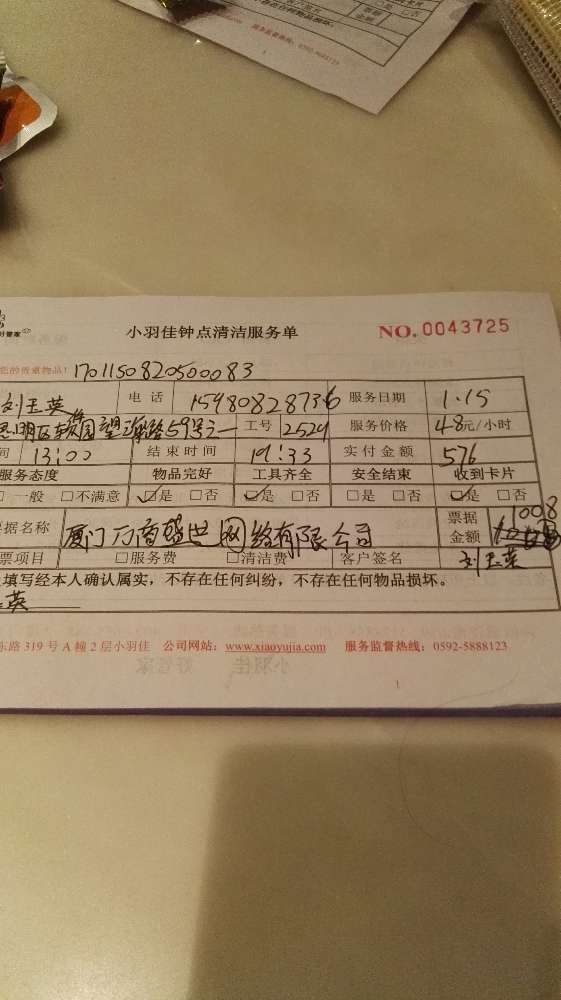 服务监督热线：0592-5888123
1
好管家
小羽佳钟点清洁服务单
NO.0043725
您的贵重物品！ 170115082050083
刘玉英 电话 15980828736 服务日期 1.15
思明区 园望海路59号之一 工号 2529 服务价格 48元/小时
间 13:00 结束时间 19:33 实付金额 576
服务态度 物品完好 工具齐全 安全结束 收到卡片
□一般 □不满意 ☑是 □否 ☑是 □否 □是 □否 ☑是 □否
票据名称 厦门万商盛世网络有限公司 票据金额 1008
票项目 □服务费 □清洁费 客户签名 刘玉英
填写经本人确认属实，不存在任何纠纷，不存在任何物品损坏。
玉英
东路319号A幢2层小羽佳 公司网站：www.xiaoyujia.com 服务监督热线：0592-5888123
1